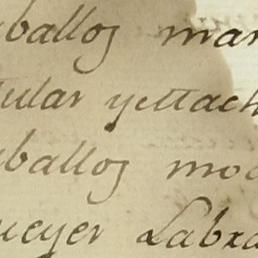 yballos man
tular yettach
yballos mod
ueyer Labra